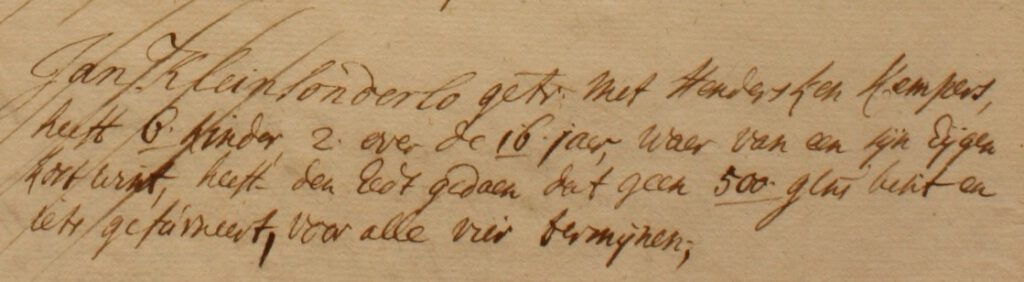 Jan Klein londerlo getr. met Hendersken Kempers,
heeft 6. kinder, 2. over de 16. jaer, waer van een sijn Eijgen
kost wint, heeft den Eedt gedaen dat geen 500. glns besit en
iets gefurneert, voor alle vier termijnen,